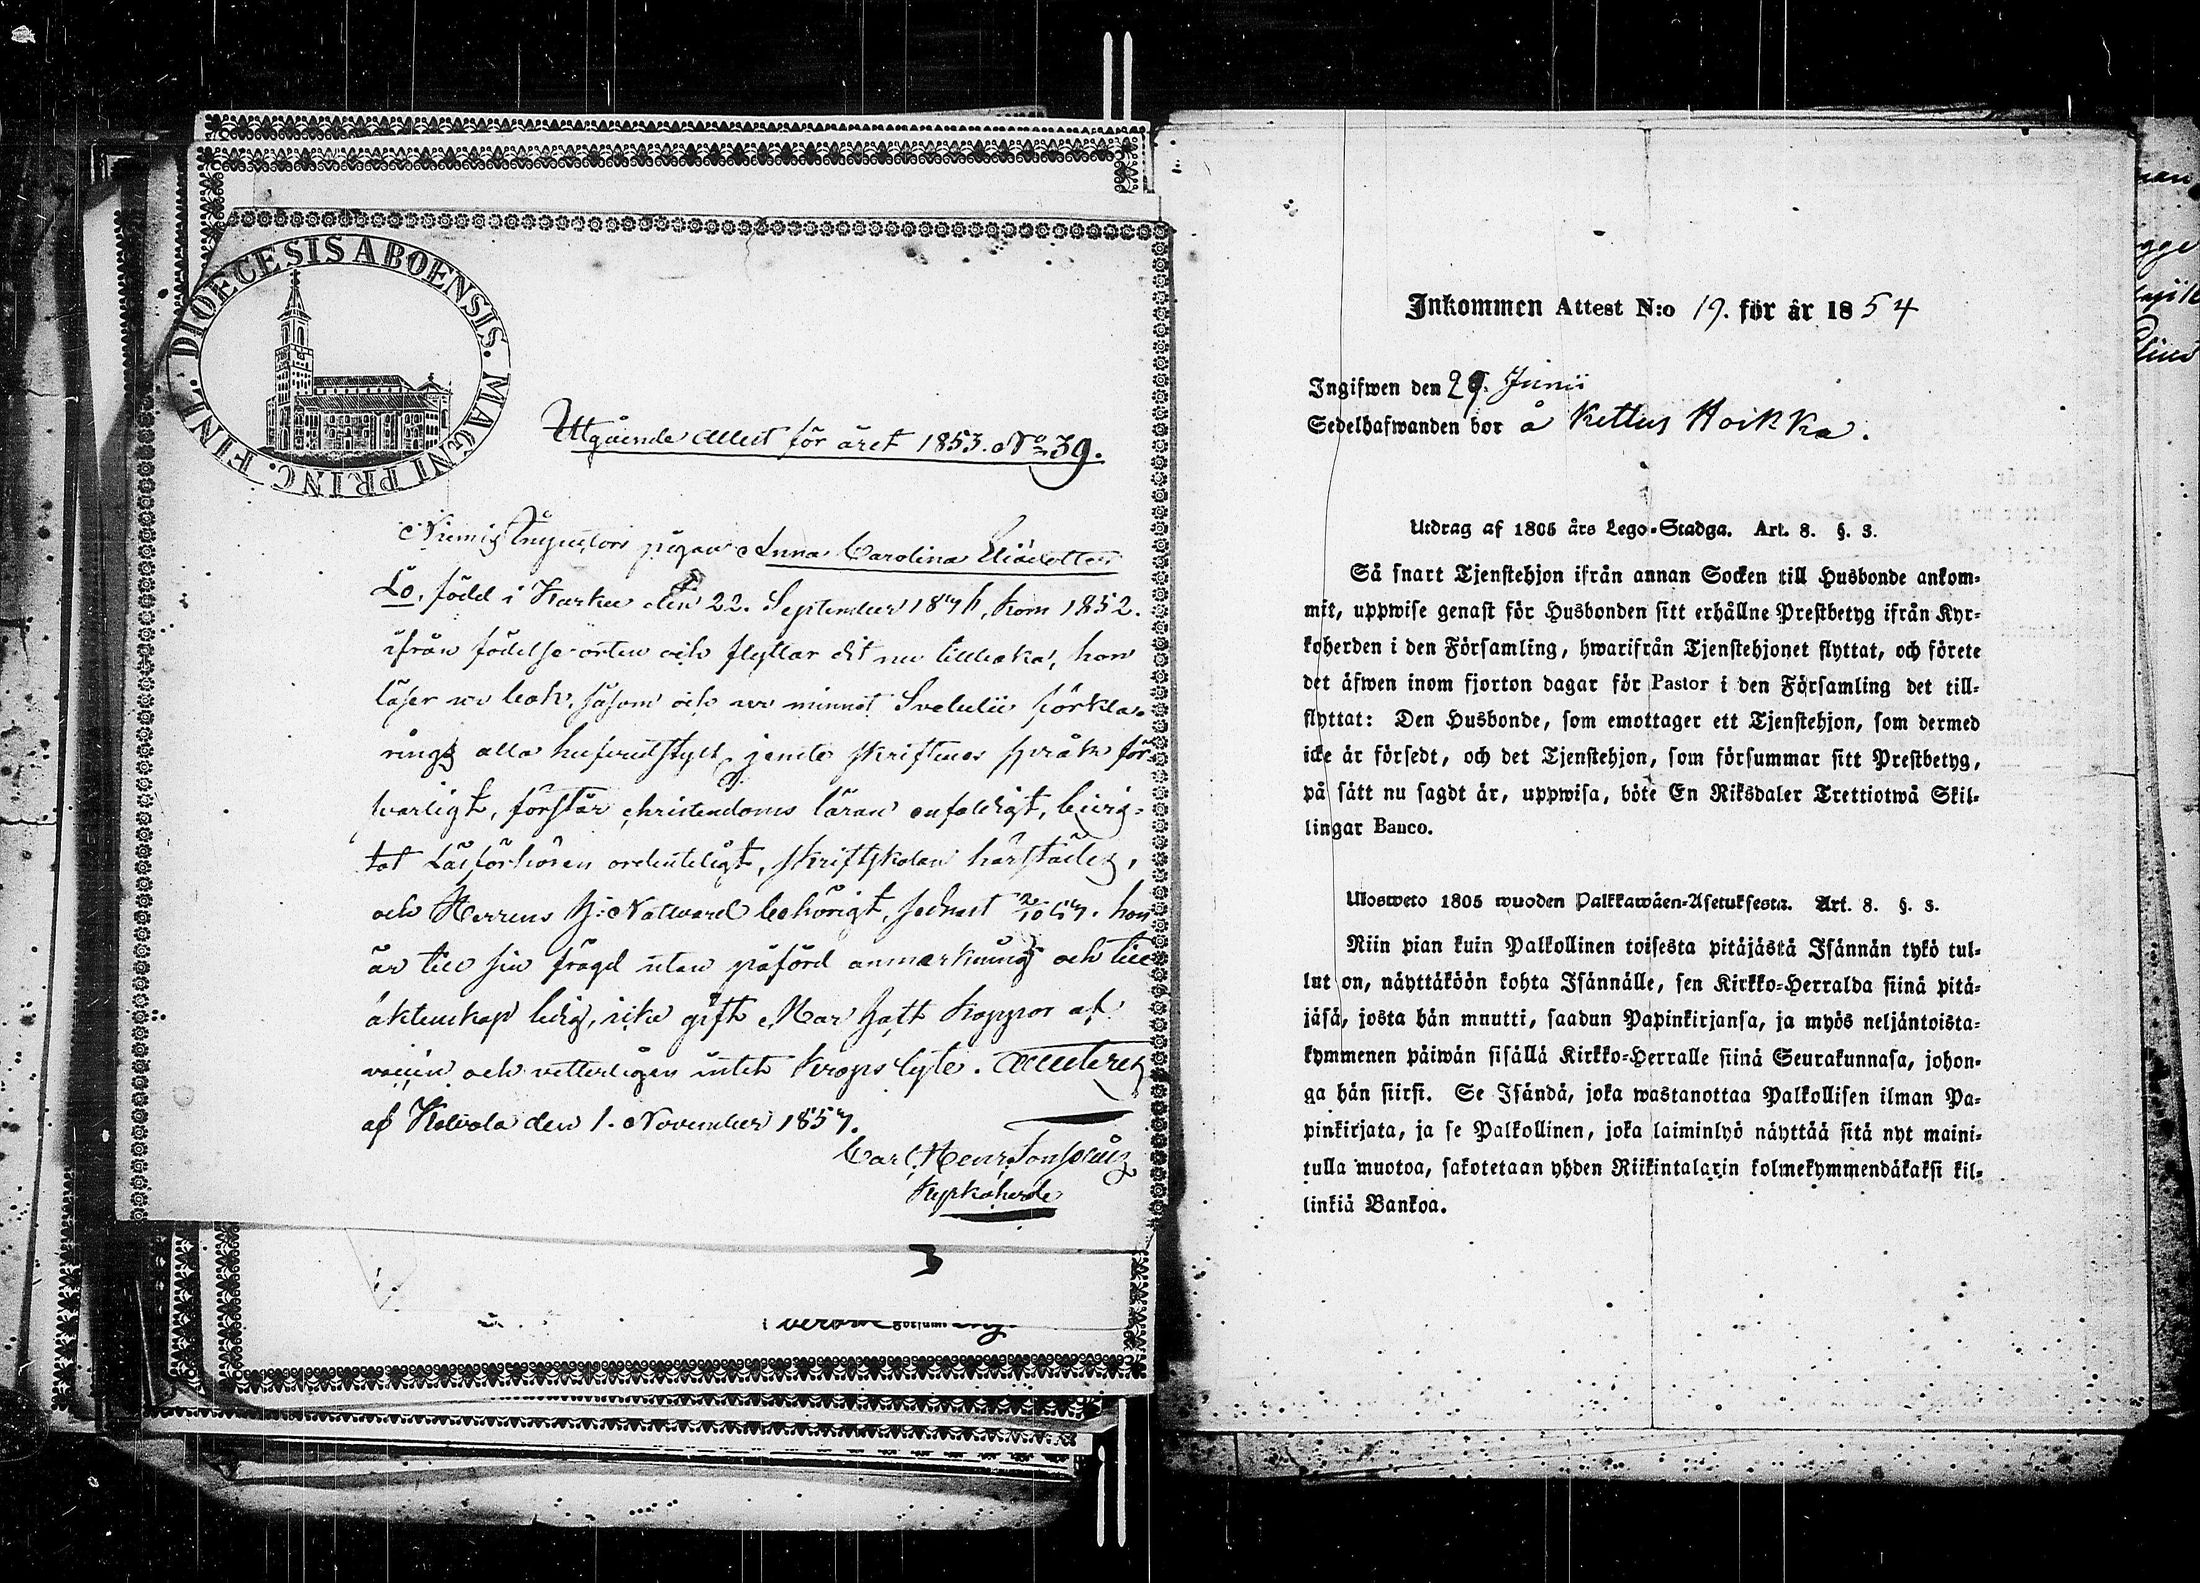 DIOECESIS ABOENSIS. MAGNI PRINC. FINL.
Utgående Attest för året 1853. No 39.
pigan Anna Carolina
Lo, född i Karku den 22. September, kom 1852.
ifrån födelse-orten och flyttar dit nu tillbaka, hon
läser i bok, såsom och utur minnet Svebelii förkla-
rings alla hufvudstycken jemte skriftenes språk för-
svarligt, förstår christendoms läran enfaldigt, bevis-
tat Läsförhören ordenteligt, skriftskolan härstädes,
och Herrens H: Nattvard behörigt, sednast. hon
är till sin frägd utan påförd anmärkning och till
äktenskap ledig, icke gift. Har haft koppor af
och vetterligen intet kropslyte. Attesteras
af Kalvola den 1. November
Carl Henr.
Kyrkoherde
3
Inkommen Attest N:o 19. för år 1854
Ingifwen den 29. Junii
Sedelhafwanden bor å Kettus Hoikka.
Utdrag af 1805 års Lego-Stadga. Art. 8. §. 3.
Så snart Tjenstehjon ifrån annan Socken till Husbonde ankom-
mit, uppwise genast för Husbonden sitt erhållne Prestbetyg ifrån Kyr-
koherden i den Församling, hwarifrån Tjenstehjonet flyttat, och förete
det äfwen inom fjorton dagar för Pastor i den Församling det till-
flyttat: Den Husbonde, som emottager ett Tjenstehjon, som dermed
icke är försedt, och det Tjenstehjon, som försummar sitt Prestbetyg,
på sätt nu sagdt är, uppwisa, böte En Riksdaler Trettiotwå Skil-
lingar Banco.
Ulosweto 1805 wuoden Palkkawäen-Asetuksesta. Art. 8. §. 3.
Niin pian kuin Palkollinen toisesta pitäjästä Isännän tykö tul-
lut on, näyttäköön kohta Isännälle, sen Kirkko-Herralda siinä pitä-
jäsä, josta hän mnutti, saadun Papinkirjansa, ja myös neljäntoista-
kymmenen päiwän sisällä Kirkko-Herralle siinä Seurakunnasa, johon-
ga hän siirsi. Se Isändä, joka wastanottaa Palkollisen ilman Pa-
pinkirjata, ja se Palkollinen, joka laiminlyö näyttää sitä nyt maini-
tulla muotoa, sakotetaan yhden Riikintalarin kolmekymmendäkaksi kil-
linkiä Bankoa.